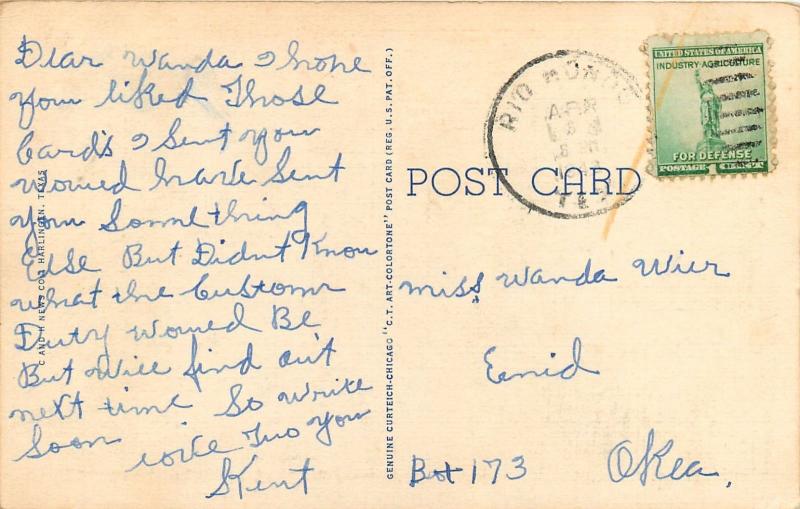 Dear Wanda I hope
you liked Those
Cards I Sent you
Woued have Sent
you Something
Else But Didnt Know
what the Customr
Duty Woued Be
But Will find out
next time So write
Soon
Kent
C AND H NEWS CO., HARLINGEN, TEXAS
GENUINE CURTEICH-CHICAGO "C.T. ART-COLORTONE" POST CARD (REG. U.S. PAT. OFF.)
POST CARD
RIO HONDO
APR
TEX.
UNITED STATES OF AMERICA
INDUSTRY-AGRICULTURE
FOR DEFENSE
POSTAGE 1 CENT
Miss Wanda Wier
Enid
Box 173 Okla.